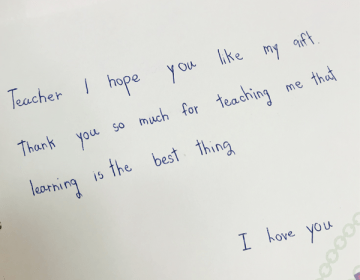 Teacher I hope you like my gift.
Thank you so much for teaching me that
learning is the best thing
I love you